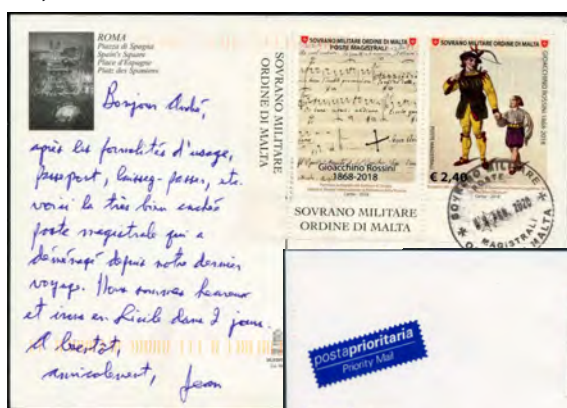 ROMA
Piazza di Spagna
Spain's Square
Place d'Espagne
Platz des Spaniens
Bonjour André,
après les formalités d'usage,
passport, laissez-passer, etc.
voici la très bien cachée
poste magistrale qui a
déménagé depuis notre dernier
voyage. Nous sommes heureux
et irons en Sicile dans 2 jours.
A bientôt,
amicalement, Jean
SOVRANO MILITARE
ORDINE DI MALTA
SOVRANO MILITARE ORDINE DI MALTA
POSTE MAGISTRALI
Gioacchino Rossini
1868-2018
SOVRANO MILITARE
ORDINE DI MALTA
SOVRANO MILITARE ORDINE DI MALTA
GIOACCHINO ROSSINI 1868-2018
POSTE MAGISTRALI
€ 2,40
SOVRANO MILITARE
MAGISTRALI
MALTA
postaprioritaria
Priority Mail